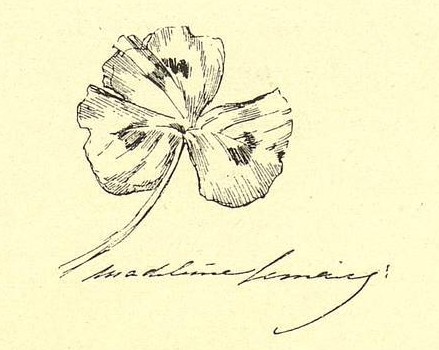 Madeleine Lemaire